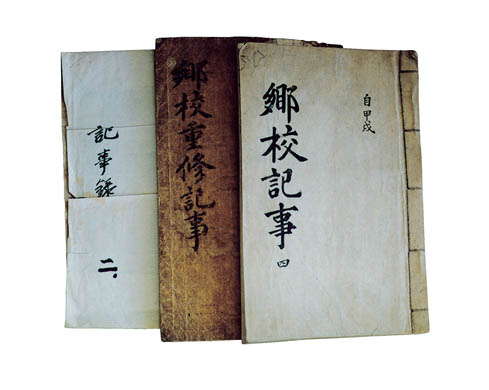 自甲戌
鄉校記事
四
鄉校重修記事
記事錄
二